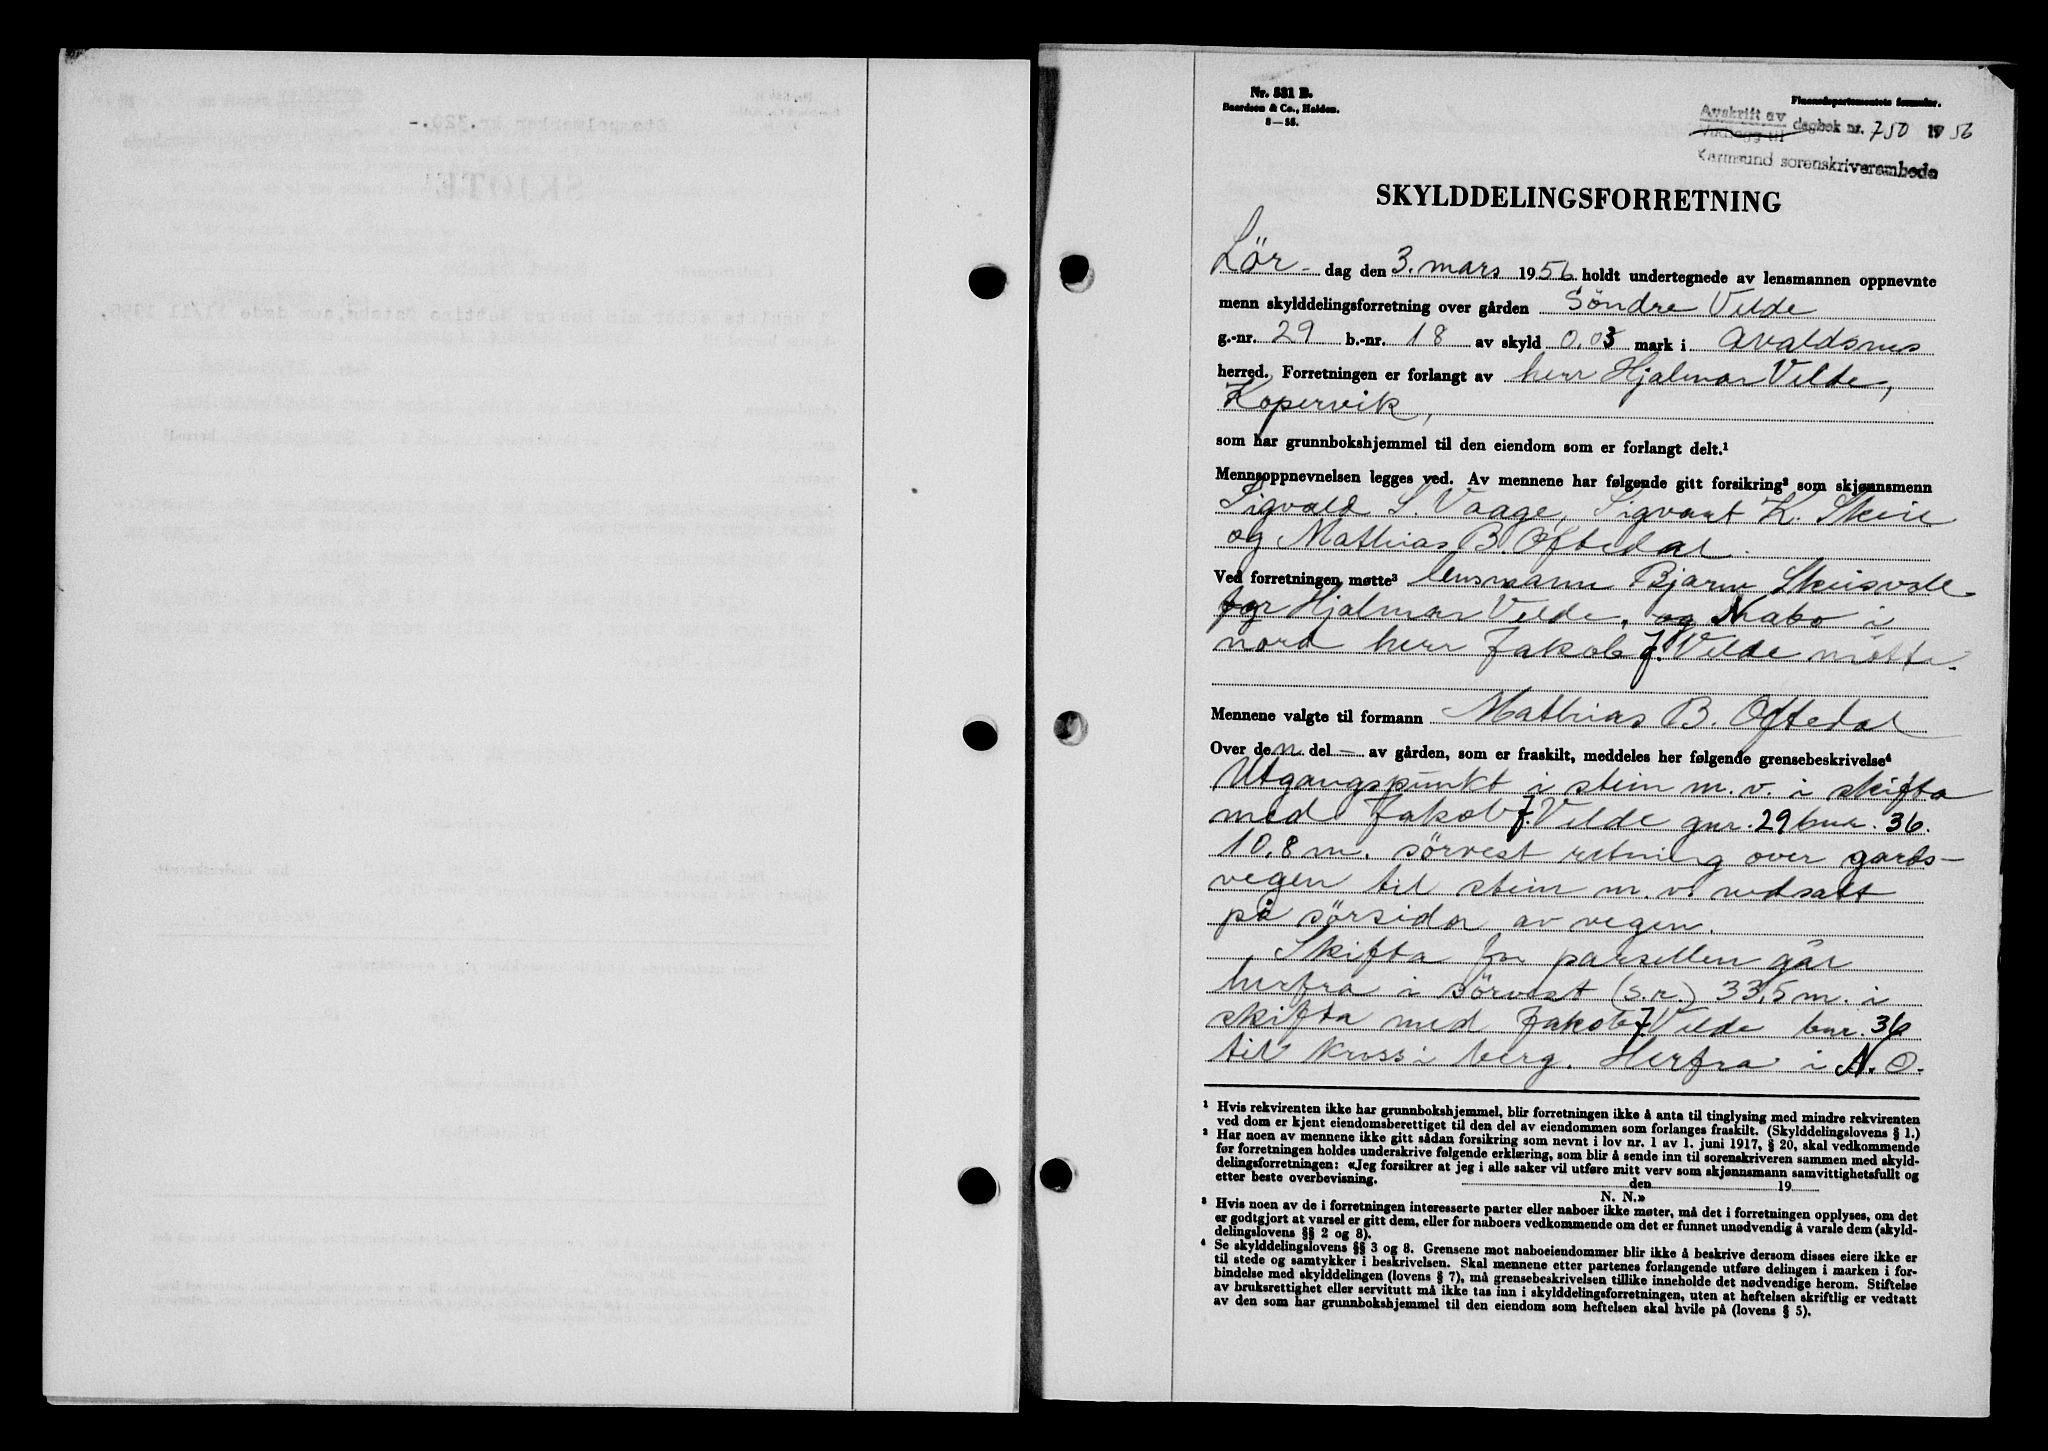 Nr. 531 B.
Baardsen & Co., Halden.
8—55.
Finansdepartementets formular.
Avskrift av
Vedlegg til dagbok nr. 750 1956
Karmsund sorenskriverembede
SKYLDDELINGSFORRETNING
Lör- dag den 3. mars 1956 holdt undertegnede av lensmannen oppnevnte
menn skylddelingsforretning over gården Söndre Velde
g.-nr. 29 b.-nr. 18 av skyld 0.03 mark i Avaldsnes
herred. Forretningen er forlangt av herr Hjalmar Velde,
Kopervik,
som har grunnbokshjemmel til den eiendom som er forlangt delt.¹
Mennsoppnevnelsen legges ved. Av mennene har følgende gitt forsikring² som skjønnsmenn
Sigvald S. Vaage, Sigvart K. Skeie
og Mathias B. Oftedal.
Ved forretningen møtte³ lensmann Bjarne
for Hjalmar Velde, og Nabo i
nord herr Jakob J. Velde møtte.
Mennene valgte til formann Mathias B. Oftedal
Over den del - av gården, som er fraskilt, meddeles her følgende grensebeskrivelse⁴
Utgangspunkt i stein m.v. i skifta
med Jakob J. Velde gnr. 29 bnr. 36.
10,8 m. sörvest retning over gards-
vegen til stein m.v. nedsatt
på sörsida av vegen.
Skifta for parsellen går
herfra i sörvest (s.r.) 33,5 m. i
skifta med Jakob J. Velde bnr. 36
til kross i berg. Herfra i N.O.
¹ Hvis rekvirenten ikke har grunnbokshjemmel, blir forretningen ikke å anta til tinglysing med mindre rekvirenten
ved dom er kjent eiendomsberettiget til den del av eiendommen som forlanges fraskilt. (Skylddelingslovens § 1.)
² Har noen av mennene ikke gitt sådan forsikring som nevnt i lov nr. 1 av 1. juni 1917, § 20, skal vedkommende
før forretningen holdes underskrive følgende erklæring, som blir å sende inn til sorenskriveren sammen med skyld-
delingsforretningen: «Jeg forsikrer at jeg i alle saker vil utføre mitt verv som skjønnsmann samvittighetsfullt og
etter beste overbevisning. den 19
N. N.»
³ Hvis noen av de i forretningen interesserte parter eller naboer ikke møter, må det i forretningen opplyses, om det
er godtgjort at varsel er gitt dem, eller for naboers vedkommende om det er funnet unødvendig å varsle dem (skyld-
delingslovens §§ 2 og 8).
⁴ Se skylddelingslovens §§ 3 og 8. Grensene mot naboeiendommer blir ikke å beskrive dersom disses eiere ikke er
til stede og samtykker i beskrivelsen. Skal mennene etter partenes forlangende utføre delingen i marken i for-
bindelse med skylddelingen (lovens § 7), må grensebeskrivelsen tillike inneholde det nødvendige herom. Stiftelse
av bruksrettighet eller servitutt må ikke tas inn i skylddelingsforretningen, uten at heftelsen skriftlig er vedtatt
av den som har grunnbokshjemmel til den eiendom som heftelsen skal hvile på (lovens § 5).